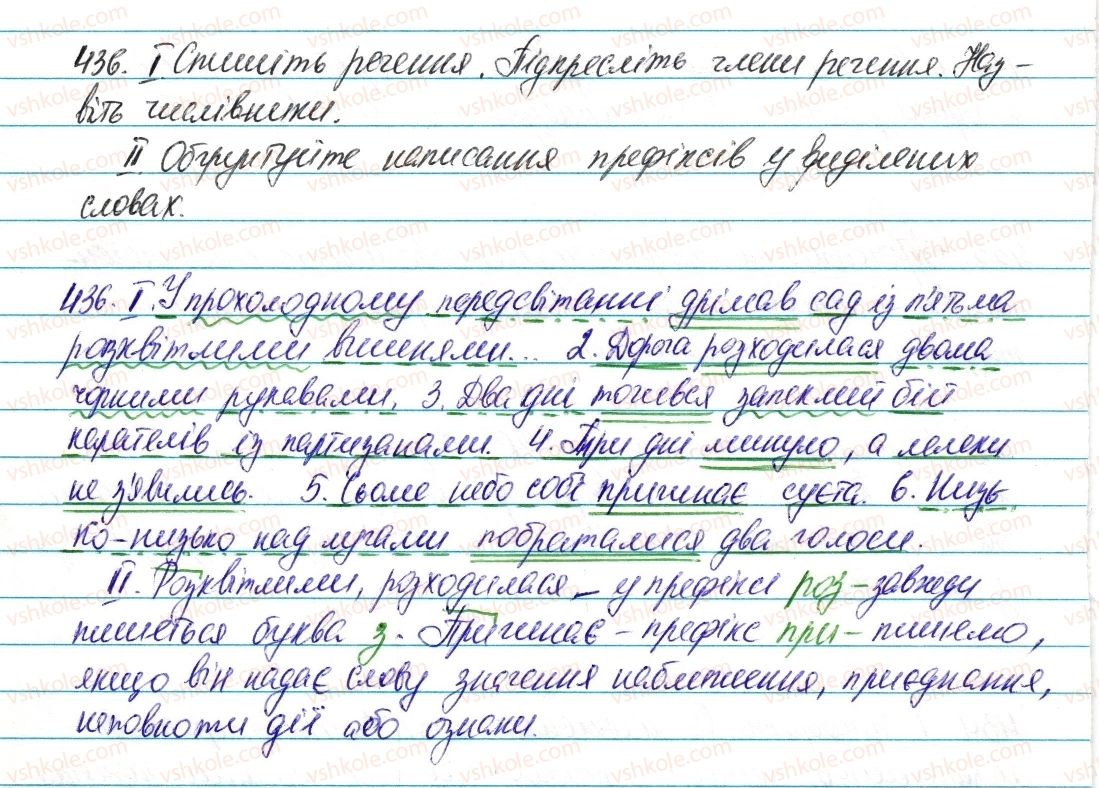 436. I Спишіть речення. Підкресліть члени речення. Наз-
віть числівники.
II Обґрунтуйте написання префіксів у виділених
словах.
436. I. У прохолодному передсвітанні дрімав сад із п'ятьма
розквітлими вишнями... 2. Дорога розходилася двома
чорними рукавами. 3. Два дні точився запеклий бій
карателів із партизанами. 4. Три дні минуло, а лелеки
не з'явились. 5. Сьоме небо собі пригинає суєта. 6. Низь
ко-низько над лугами побраталися два голоси.
II. Розквітлими, розходилася – у префіксі роз- завжди
пишеться буква з. Пригинає – префікс при- пишемо,
якщо він надає слову значення наближення, приєднання,
неповноти дії або ознаки.